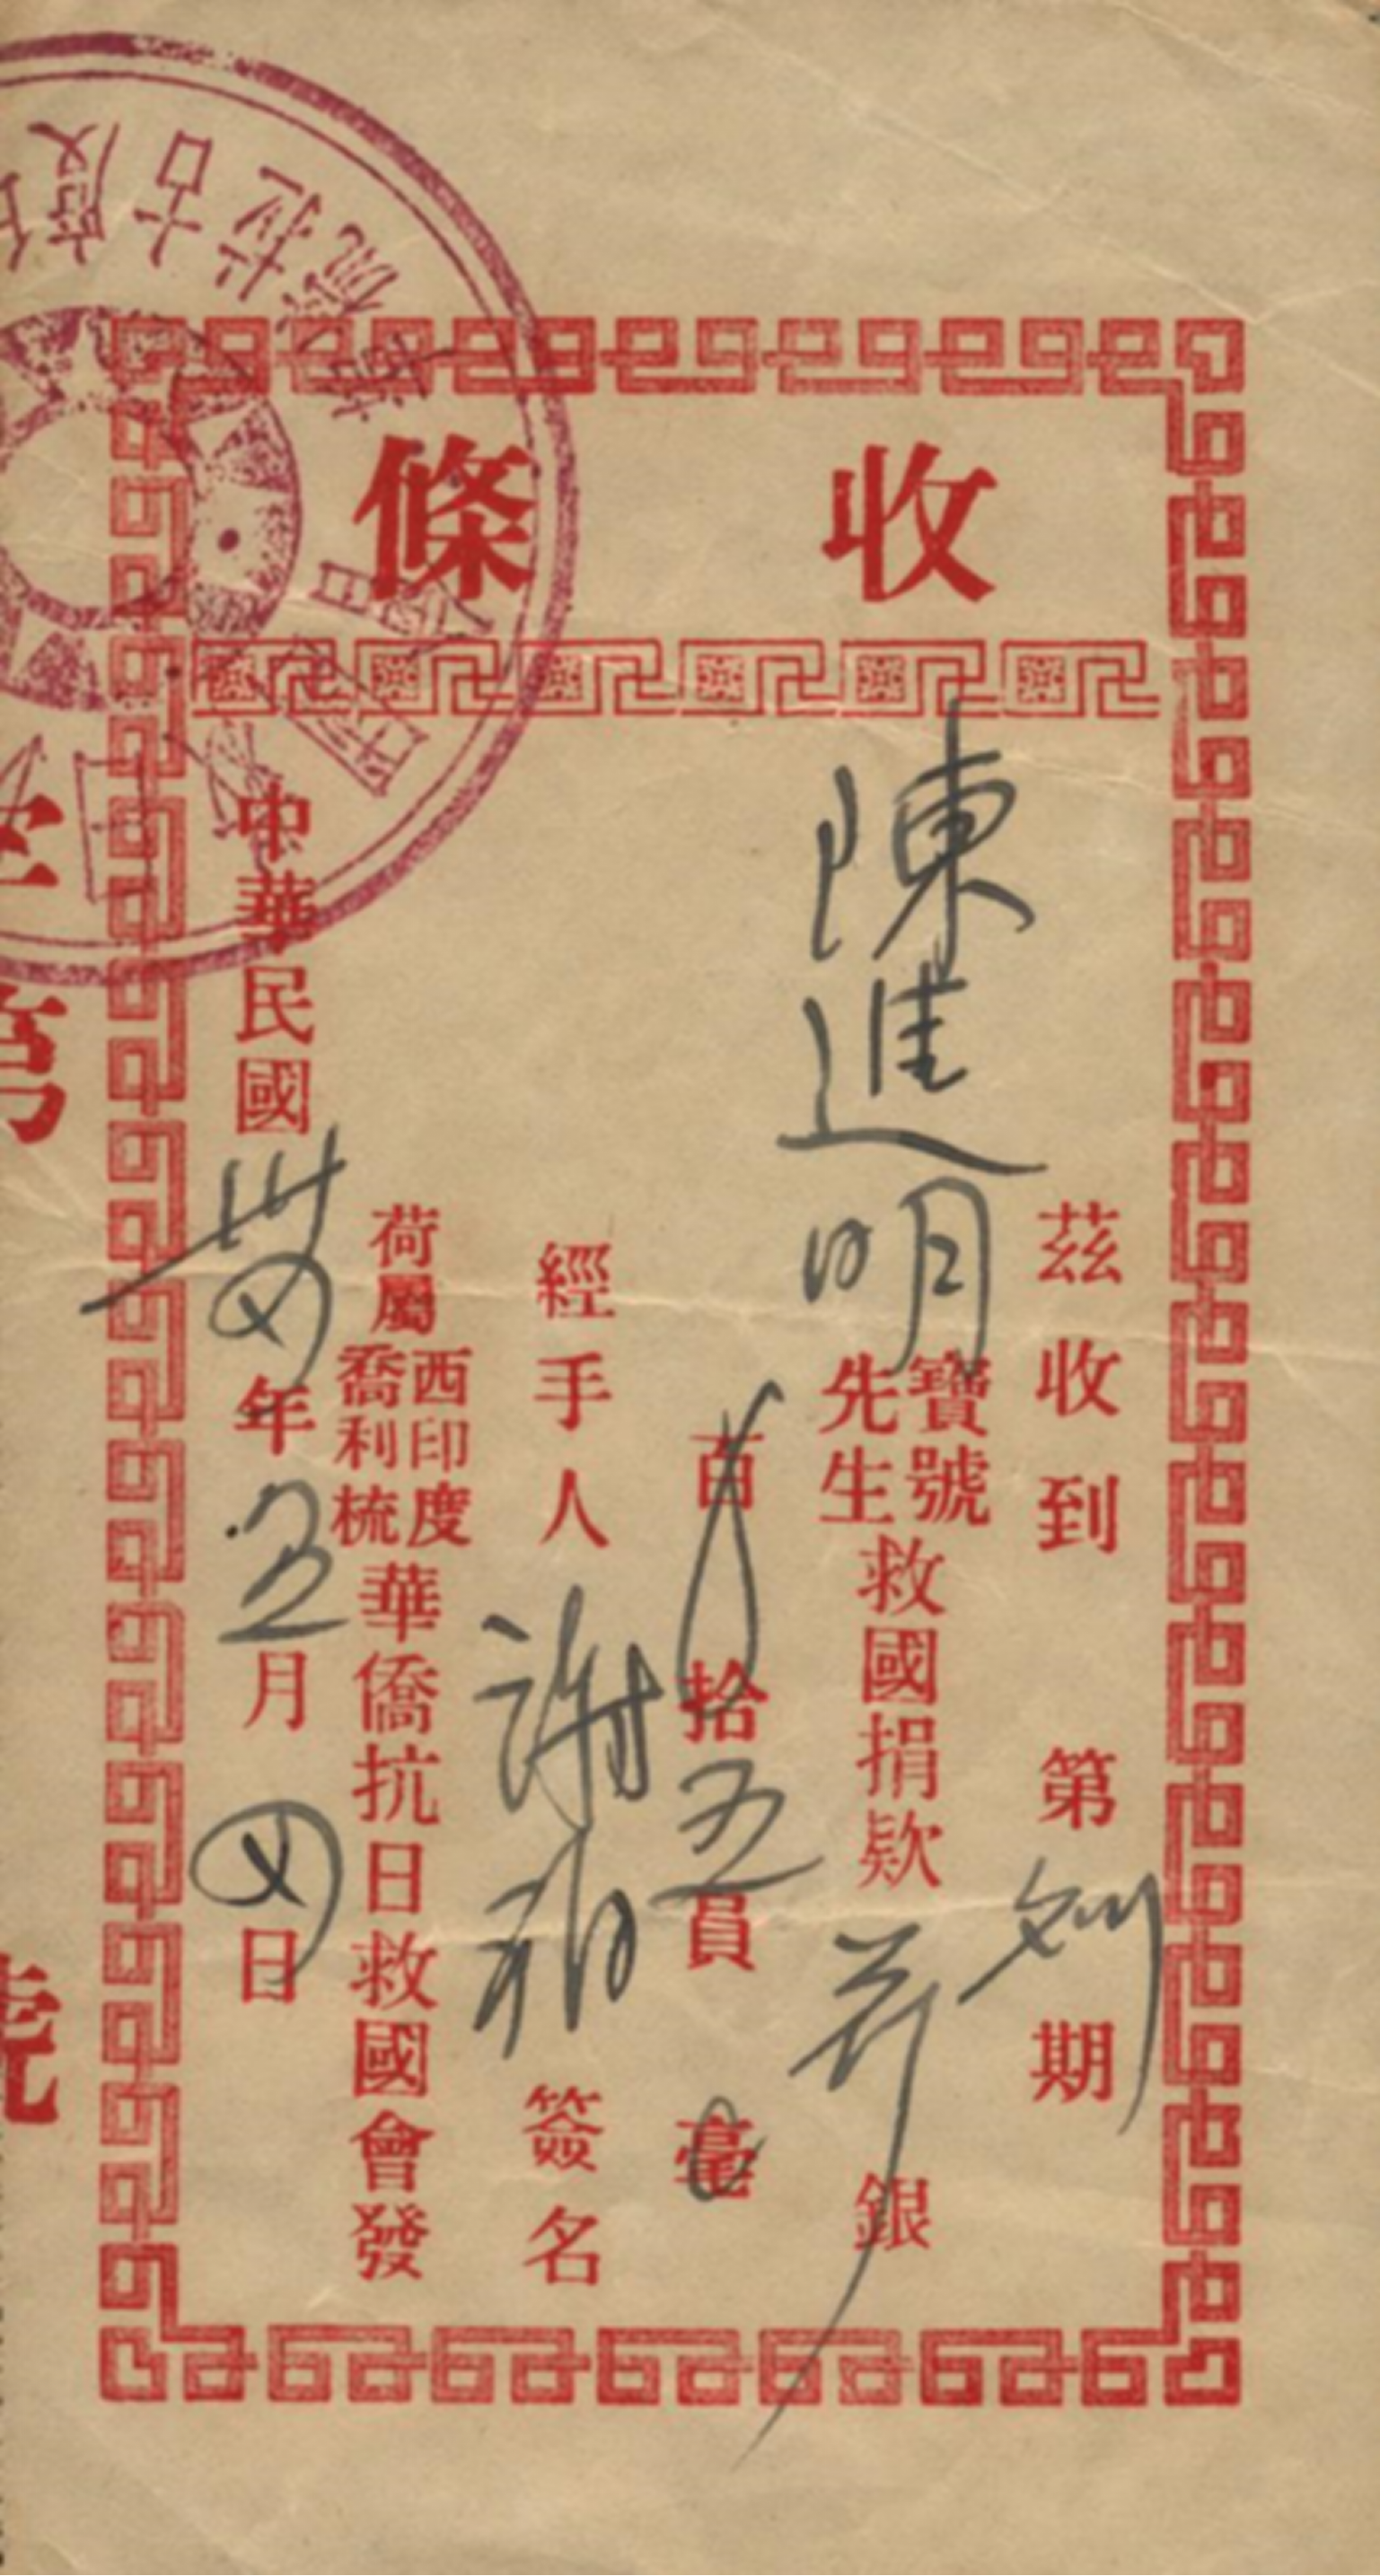 收條
茲收到第期
陳進明寶號先生救國捐欵銀
百拾五員毫
經手人謝簽名
荷屬西印度喬利梳華僑抗日救國會發
中華民國卅四年五月四日
字第號